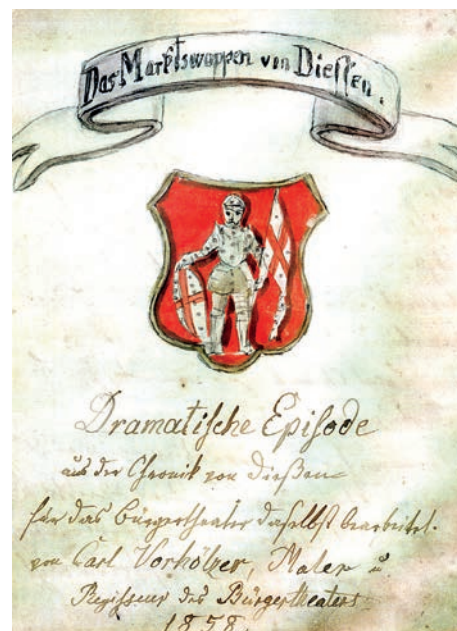 Das Marktswappen von Dießen.
Dramatische Episode
aus der Chronik von Dießen
für das Bürgertheater daselbst bearbeitet.
von Carl Vorhölzer, Maler u.
Regisseur des Bürgertheaters
1858.